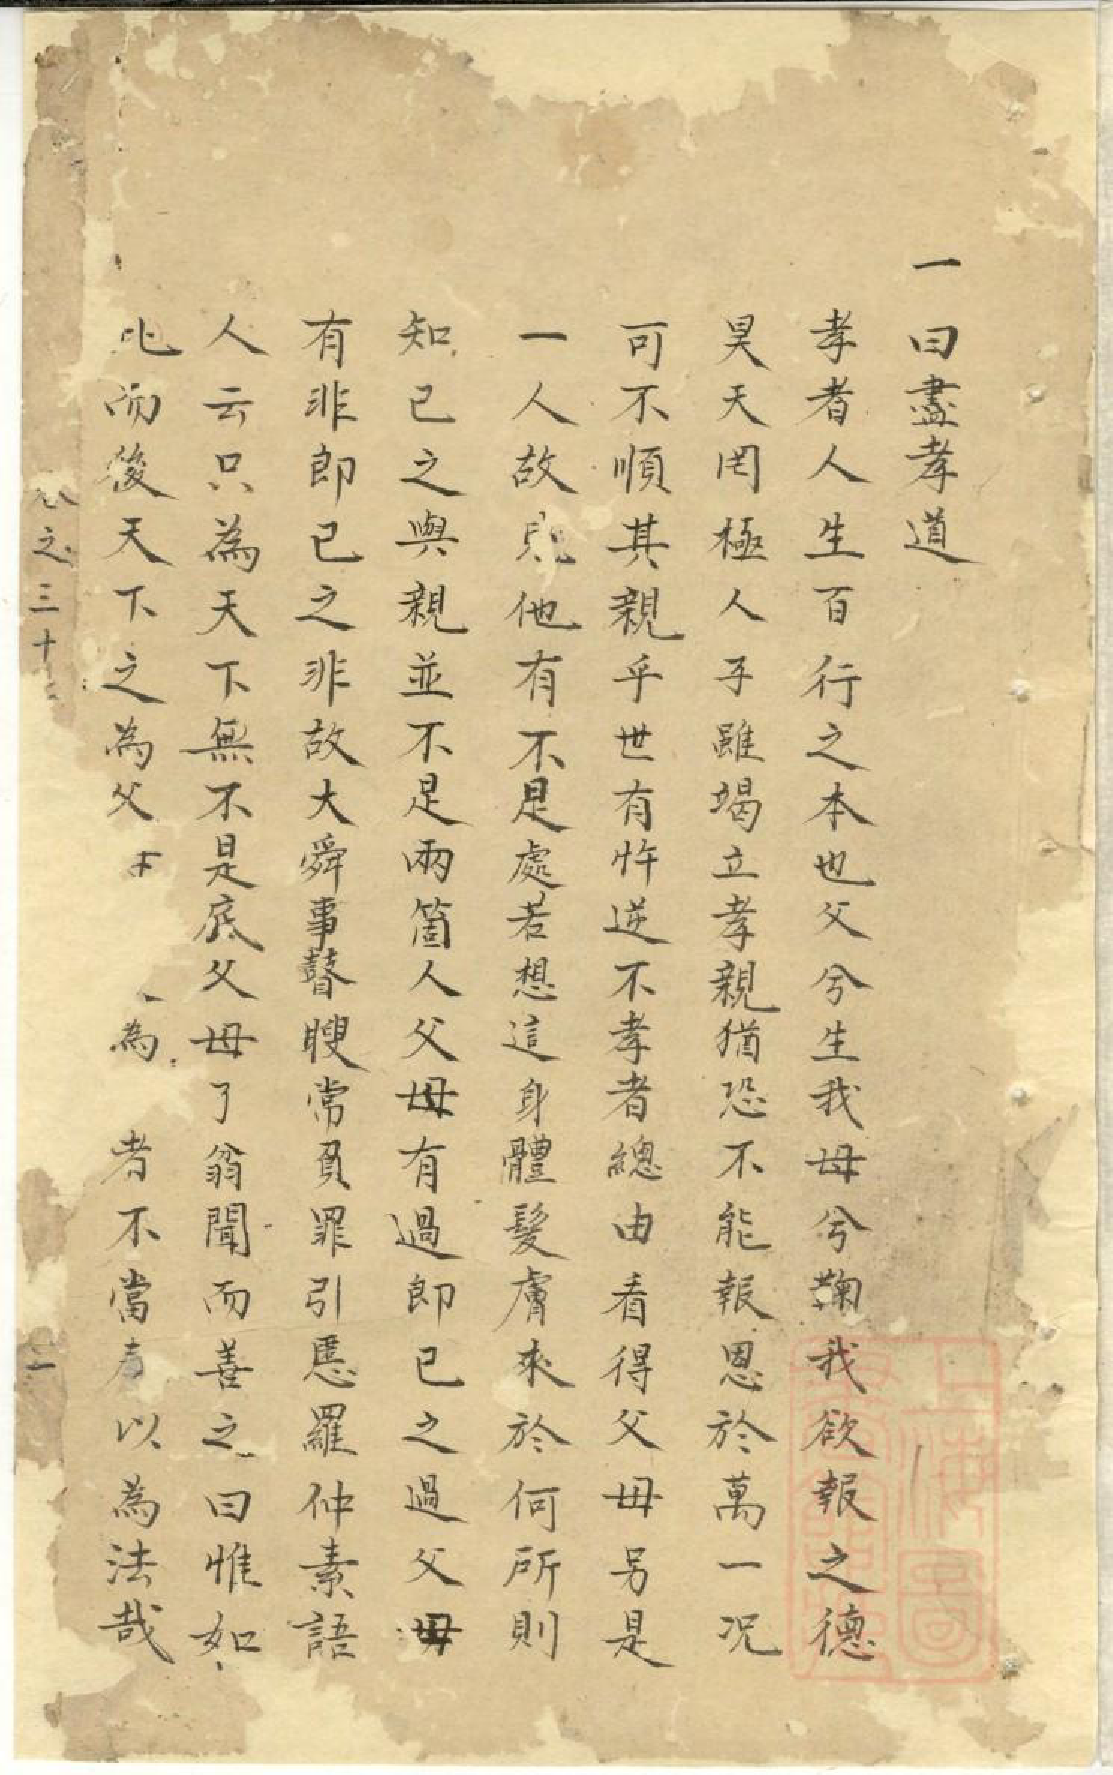 一曰盡孝道
孝者人生百行之本也父兮生我母兮鞠我欲報之德
昊天罔極人子雖竭立孝親猶恐不能報恩於萬一况
可不順其親乎世有忤逆不孝者總由看得父母另是
一人故見他有不是處若想這身體髮膚來於何所則
知己之與親並不是兩箇人父母有過即己之過父母
有非即己之非故大舜事瞽瞍常負罪引慝羅仲素語
人云只為天下無不是底父母了翁聞而善之曰惟如
此而後天下之為父 為 者不當 以為法哉
之三十
一
上海圖書館藏